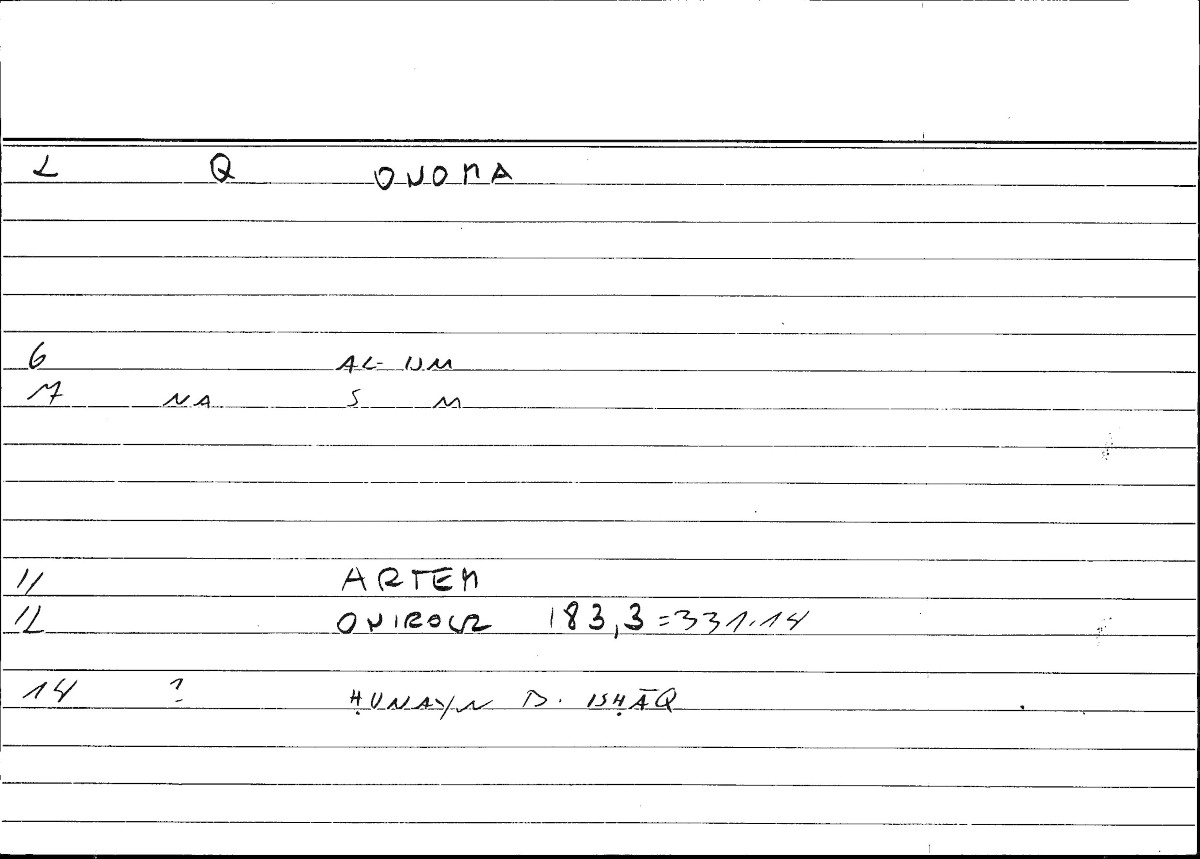 2 Q ONOMA
6 AL-ISM
7 NA S M
11 ARTEM
12 ONIROCR 183,3=331.14
14 ? ḤUNAYN B. ISḤĀQ